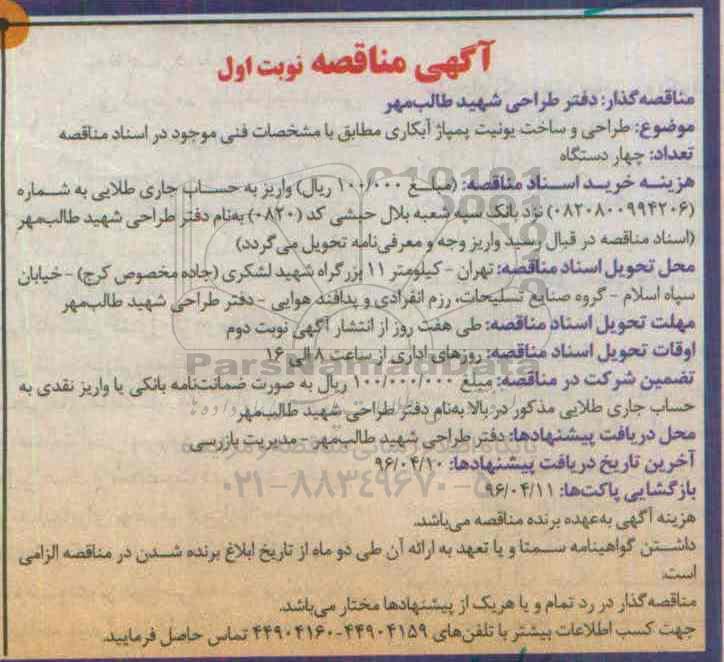 آگهی مناقصه نوبت اول
مناقصه‌گذار: دفتر طراحی شهید طالب‌مهر
موضوع: طراحی و ساخت یونیت پمپاژ آبکاری مطابق با مشخصات فنی موجود در اسناد مناقصه
تعداد: چهار دستگاه
هزینه خرید اسناد مناقصه: (مبلغ ۱۰۰/۰۰۰ ریال) واریز به حساب جاری طلایی به شماره
(۰۸۲۰۸۰۰۹۹۴۲۰۶) نزد بانک سپه شعبه بلال حبشی کد (۰۸۲۰) به‌نام دفتر طراحی شهید طالب‌مهر
(اسناد مناقصه در قبال رسید واریز وجه و معرفی‌نامه تحویل می‌گردد)
محل تحویل اسناد مناقصه: تهران - کیلومتر ۱۱ بزرگراه شهید لشکری (جاده مخصوص کرج) - خیابان
سپاه اسلام - گروه صنایع تسلیحات، رزم انفرادی و پدافند هوایی - دفتر طراحی شهید طالب‌مهر
مهلت تحویل اسناد مناقصه: طی هفت روز از انتشار آگهی نوبت دوم
اوقات تحویل اسناد مناقصه: روزهای اداری از ساعت ۸ الی ۱۶
ParsNamadData
تضمین شرکت در مناقصه: مبلغ ۱۰۰/۰۰۰/۰۰۰ ریال به صورت ضمانت‌نامه بانکی یا واریز نقدی به
حساب جاری طلایی مذکور در بالا به‌نام دفتر طراحی شهید طالب‌مهر
محل دریافت پیشنهادها: دفتر طراحی شهید طالب‌مهر - مدیریت بازرسی
آخرین تاریخ دریافت پیشنهادها: ۹۶/۰۴/۱۰
۰۲۱-۸۸۳۴۹۶۷۰-۵
بازگشایی پاکت‌ها: ۹۶/۰۴/۱۱
هزینه آگهی به‌عهده برنده مناقصه می‌باشد.
داشتن گواهینامه سمتا و یا تعهد به ارائه آن طی دو ماه از تاریخ ابلاغ برنده شدن در مناقصه الزامی
است.
مناقصه‌گذار در رد تمام و یا هریک از پیشنهادها مختار می‌باشد.
جهت کسب اطلاعات بیشتر با تلفن‌های ۴۴۹۰۴۱۵۹-۴۴۹۰۴۱۶۰ تماس حاصل فرمایید.